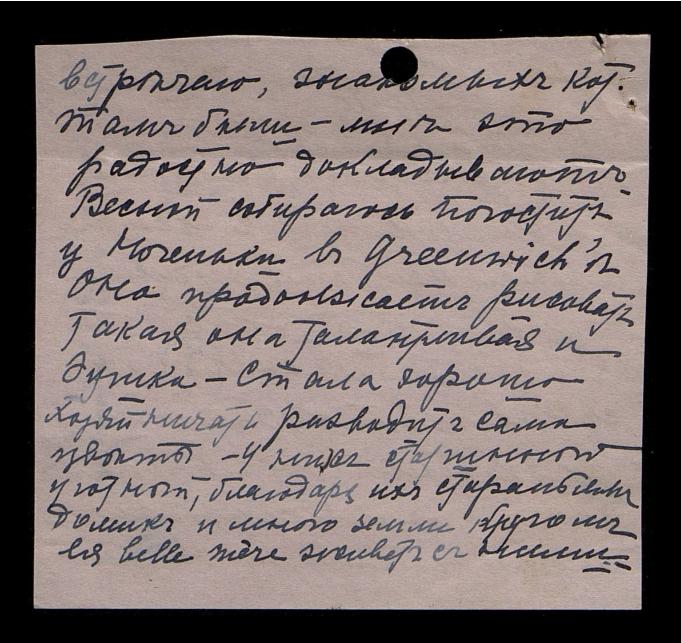 встрѣчаю, знакомыхъ кот.
тамъ были – мнѣ это
радостно докладываютъ.
Весной собираюсь погостить
у Ноченьки въ Greenwich'ѣ
Она продолжаетъ рисовать
такая она талантливая и
душка – стала хорошо
хозяйничать и разводитъ сама
цвѣты – у нихъ старинной
уютной, благодаря ихъ стараньямъ
домикъ и много земли кругомъ
ея belle mère живетъ съ ними